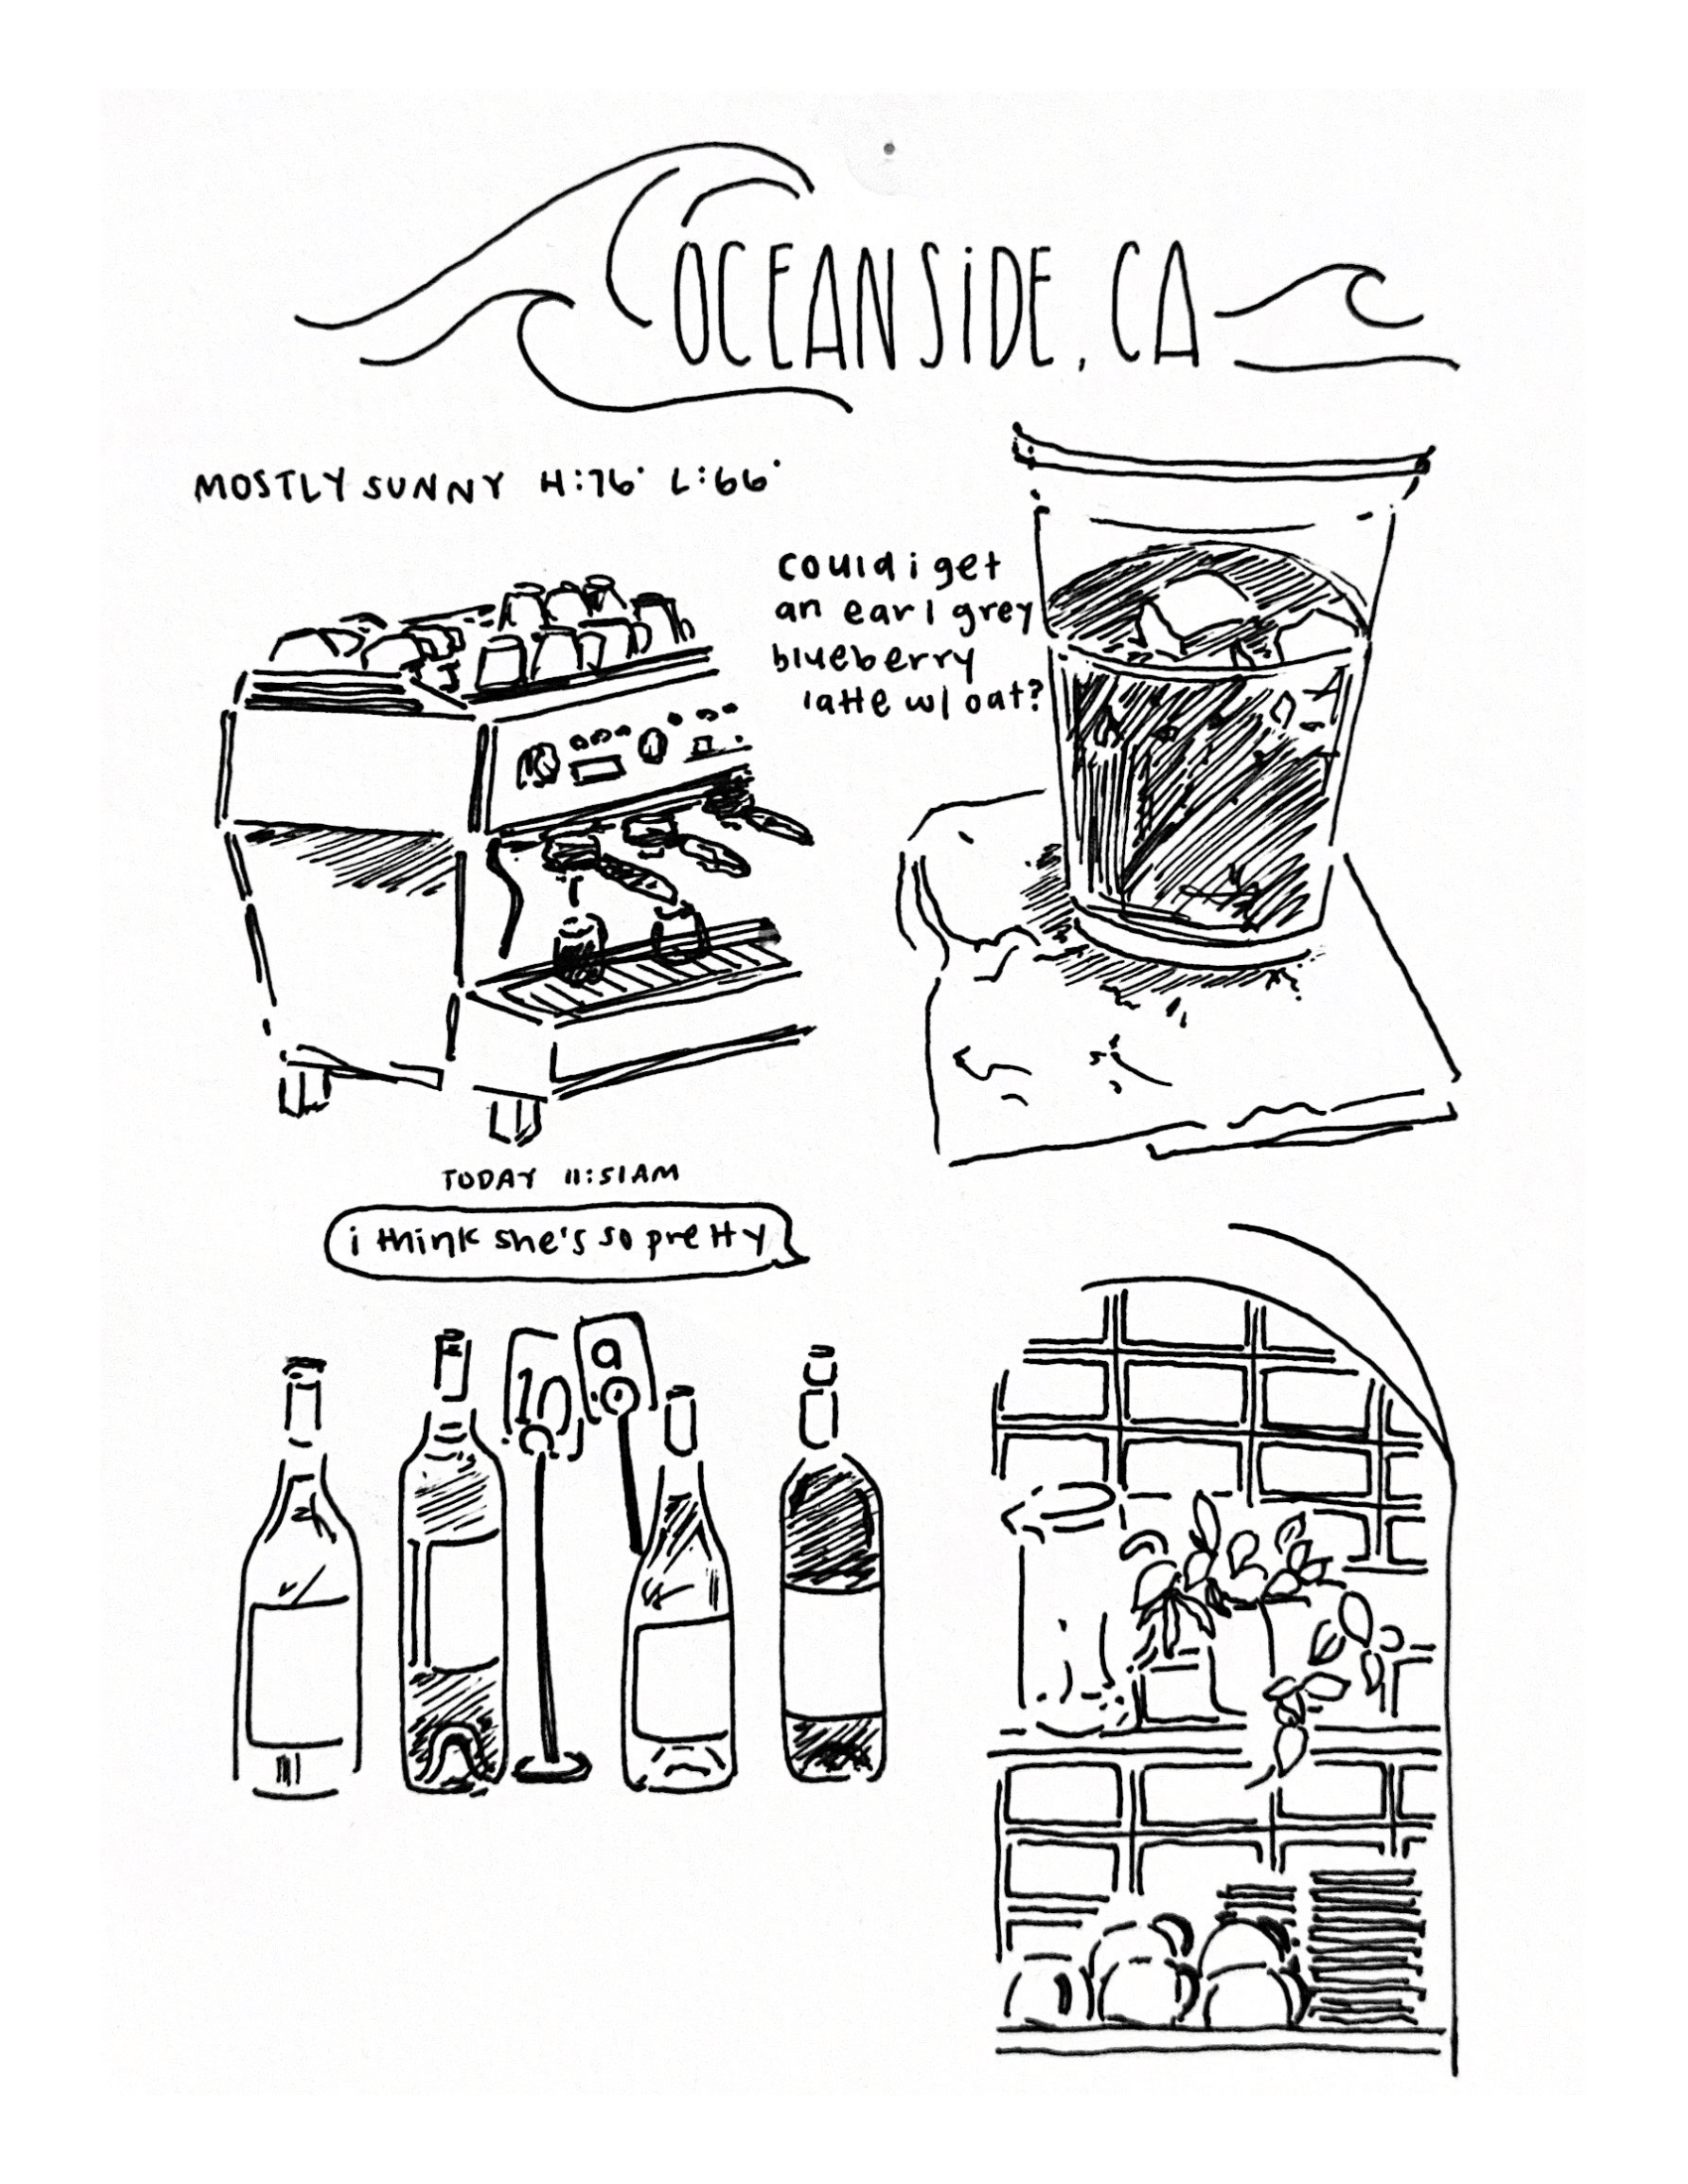 OCEANSIDE, CA
MOSTLY SUNNY H:76° L:66°
could i get
an earl grey
blueberry
latte w/ oat?
TODAY 11:51AM
i think she's so pretty
10
9